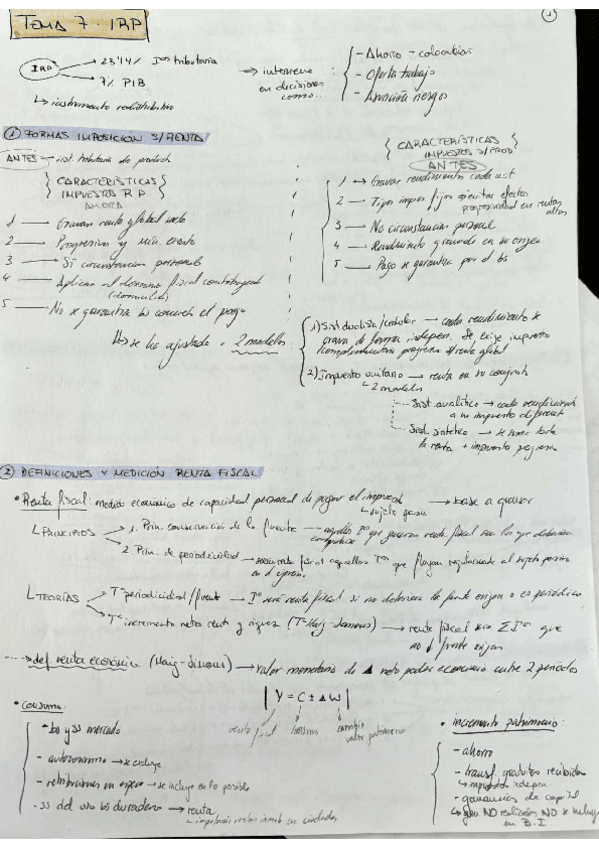 TEMA 7. IRP
1
IRP → 23'14% Iºs tributaria
→ 7% PIB
↳ instrumento redistributivo
→ interviene en decisiones como...
- Ahorro - colocación
- Oferta trabajo
- Asumir riesgos
① FORMAS IMPOSICIÓN S/RENTA
ANTES — sist. tributaria de product
CARACTERÍSTICAS
IMPUESTOS R P
AHORA
1 — Gravan renta global neta
2 — Progresivos y mín. exento
3 — Sí circunstancias personales
4 — Aplican el dominio fiscal contribuyente
(domicilio)
5 — No se garantiza el pago
↳ se ha ajustado a 2 modelos
CARACTERÍSTICAS
IMPUESTOS S/PROD
ANTES
1 → Gravar rendimientos cada act
2 — Tipos impos fijos efectos
progresividad en rentas altas
3 — No circunstancias personal
4 — Rendimiento gravado en su origen
5 — Pago se garantiza por el bº
1) Sist dualista/cedular → cada rendimiento se
grava de forma indepen. Se exige impuesto
complementario progresivo s/renta global
2) Impuesto unitario → renta en su conjunto
↳ 2 modelos
Sist. analítico → cada rendimiento
a un impuesto diferent
Sist. sintético → se suma toda
la renta + impuesto progresivo
② DEFINICIONES Y MEDICIÓN RENTA FISCAL
• Renta fiscal: medida económica de capacidad personal de pagar el impuesto → base a gravar
↳ sujeto pasivo
↳ PRINCIPIOS
1. Prin. conservación de la fuente — aquellos Iºs que generan renta fiscal sea lo que
2. Prin. de periodicidad → renta fiscal aquellos Iºs que fluyan regularmente al sujeto pasivo
↳ TEORÍAS
Tª periodicidad/fuente → Iº será renta fiscal si no deteriora la fuente origen o es periódico
Tª incremento neto renta y riqueza (Tª Haig-Simons) → renta fiscal Σ Iºs que
no ↓ fuente origen
→ def. renta económica (Haig-Simons) → valor monetario de ▲ neto poder económico entre 2 periodos
| Y = C ± ▲W |
renta fiscal consumo cambio valor patrimonio
• CONSUMO:
- bs y ss mercado
- autoconsumo → se excluye
- retribuciones en especie → se incluye en lo posible
- ss del uso bs duraderos → renta
• incremento patrimonio:
- ahorro
- transf. gratuitas recibidas
↳ impuesto indepen.
- ganancias de capital
↳ NO realizadas NO se incluyen
en B.I